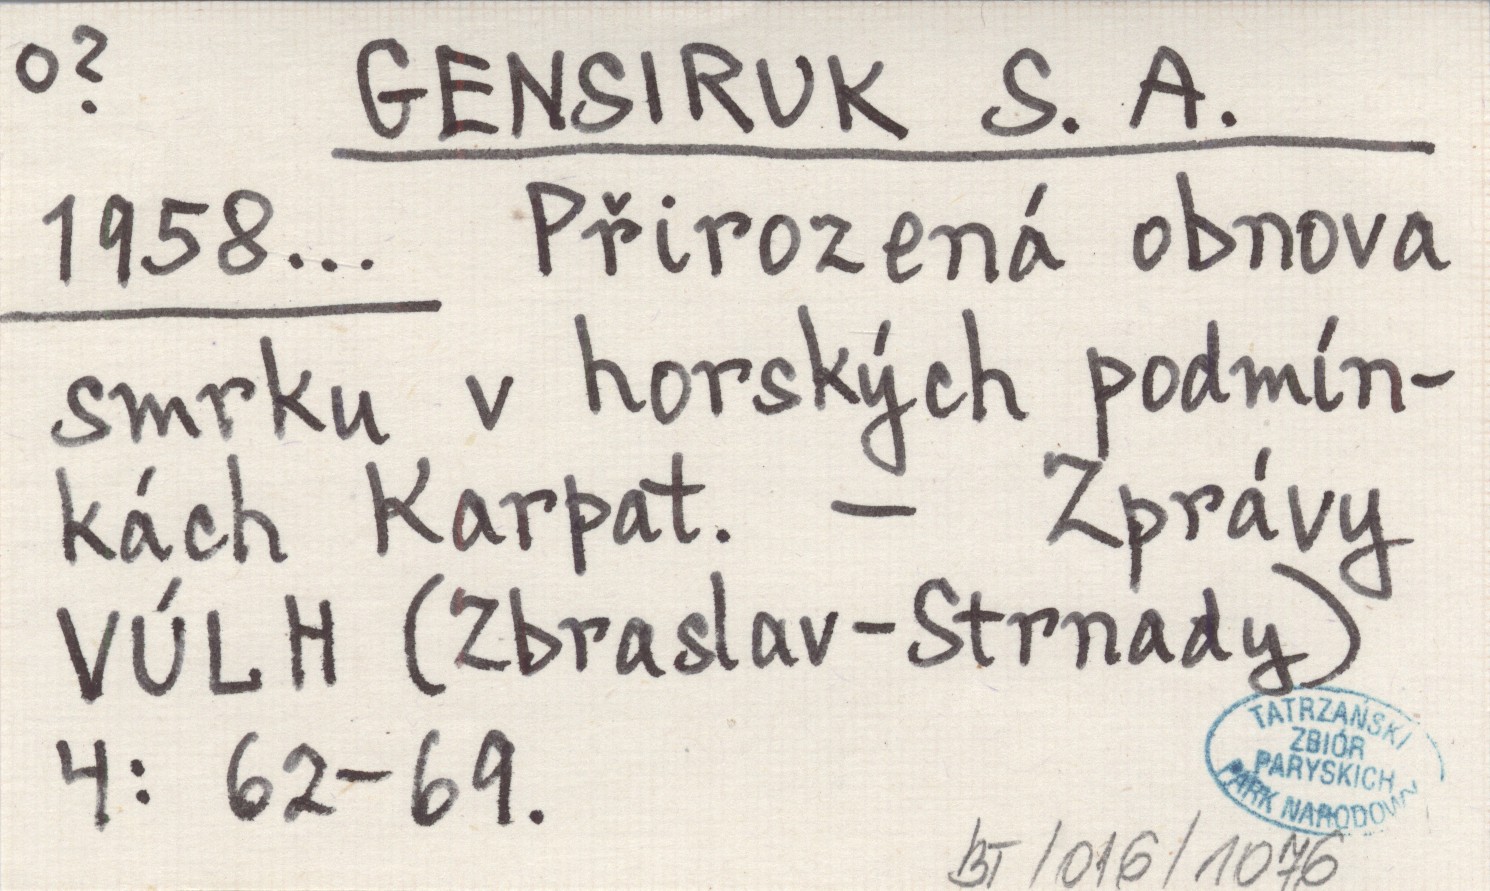 o?
GENSIRUK S. A.
1958... Přirozená obnova
smrku v horských podmín-
kách Karpat. — Zprávy
VÚLH (Zbraslav-Strnady)
4: 62-69.
TATRZAŃSKI
ZBIÓR
PARYSKICH
PARK NARODOWY
BT/016/1076